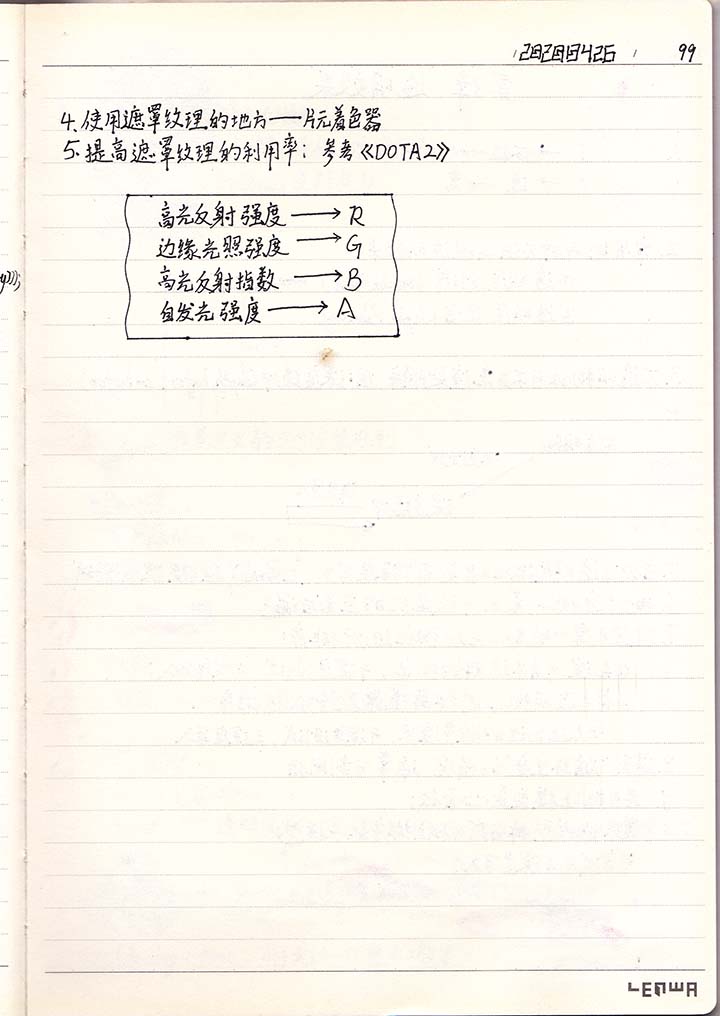 20200426 99
4. 使用遮罩纹理的地方——片元着色器
5. 提高遮罩纹理的利用率：参考《DOTA2》
高光反射强度→R
边缘光照强度→G
高光反射指数→B
自发光强度→A
y)));